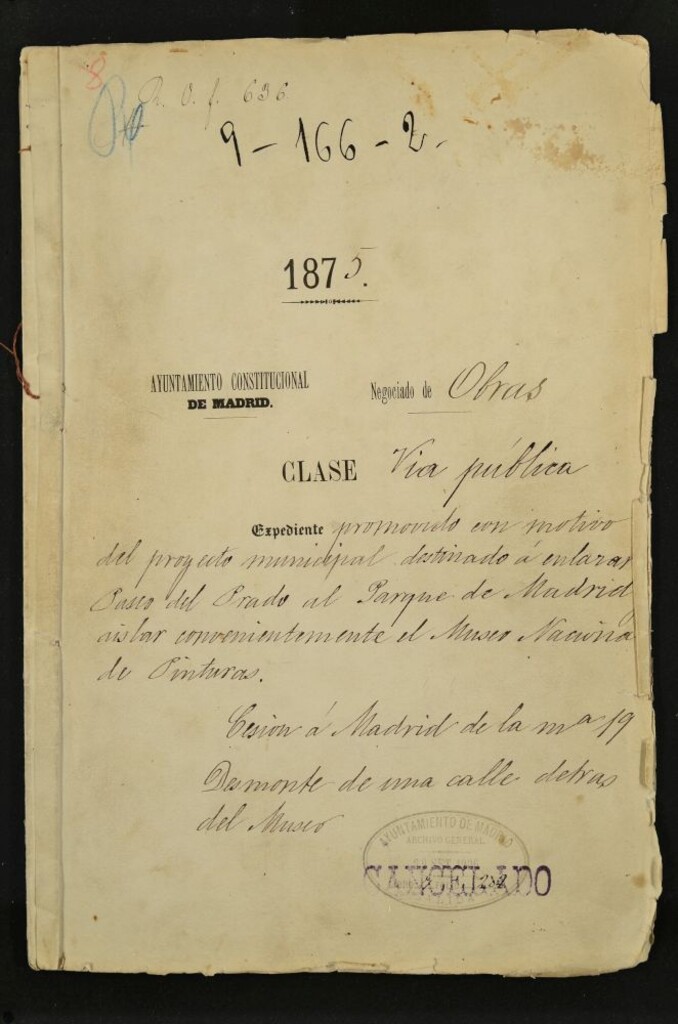 8
R. O. f. 636
9-166-2.
1875.
AYUNTAMIENTO CONSTITUCIONAL
DE MADRID.
Negociado de Obras
CLASE Via pública
Expediente promovido con motivo
del proyecto municipal destinado á enlazar
Paseo del Prado al Parque de Madrid
aislar convenientemente el Museo Naciona
de Pinturas.
Cesion á Madrid de la mª 19
Desmonte de una calle detras
del Museo
AYUNTAMIENTO DE MADRID
ARCHIVO GENERAL
CANCELADO